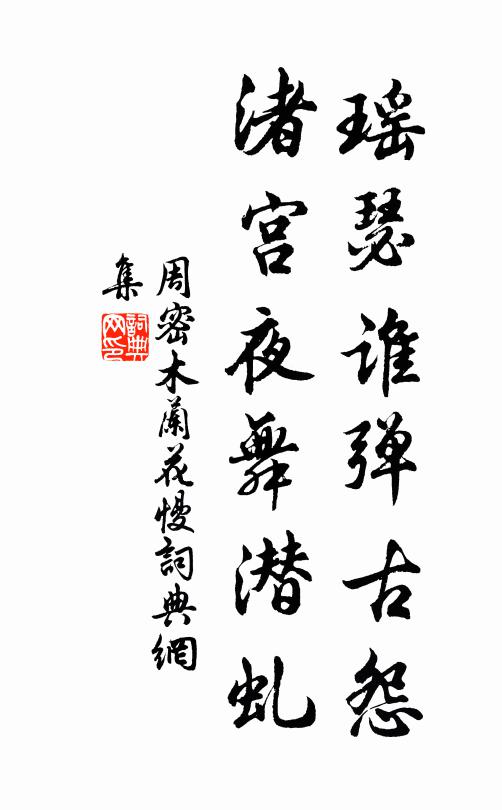 瑶瑟谁弹古怨
渚宫夜舞潜虬
周密木蘭花慢詞典網
集
詞典
网印